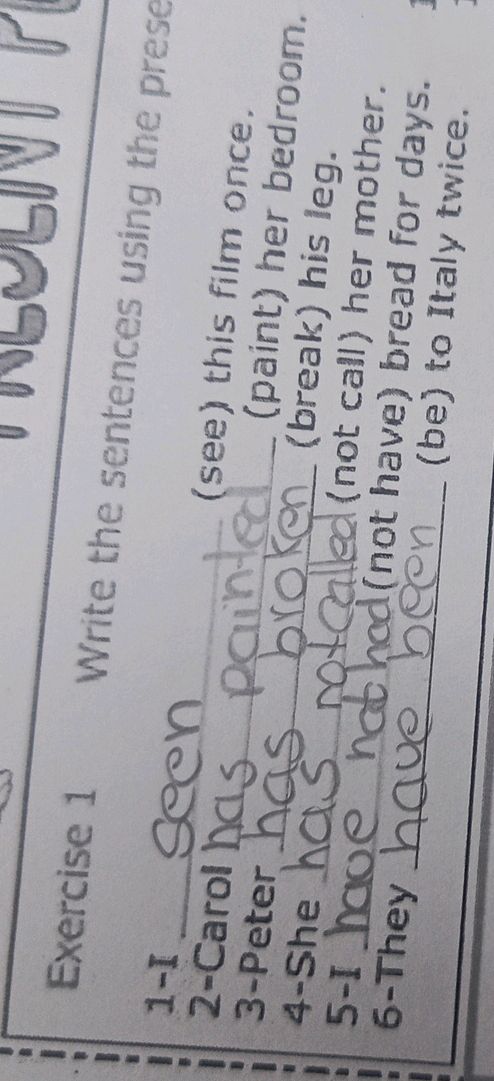 Exercise 1 Write the sentences using the prese
1-I seen (see) this film once.
2-Carol has painted (paint) her bedroom.
3-Peter has broken (break) his leg.
4-She has not called (not call) her mother.
5-I have not had (not have) bread for days.
6-They have been (be) to Italy twice.